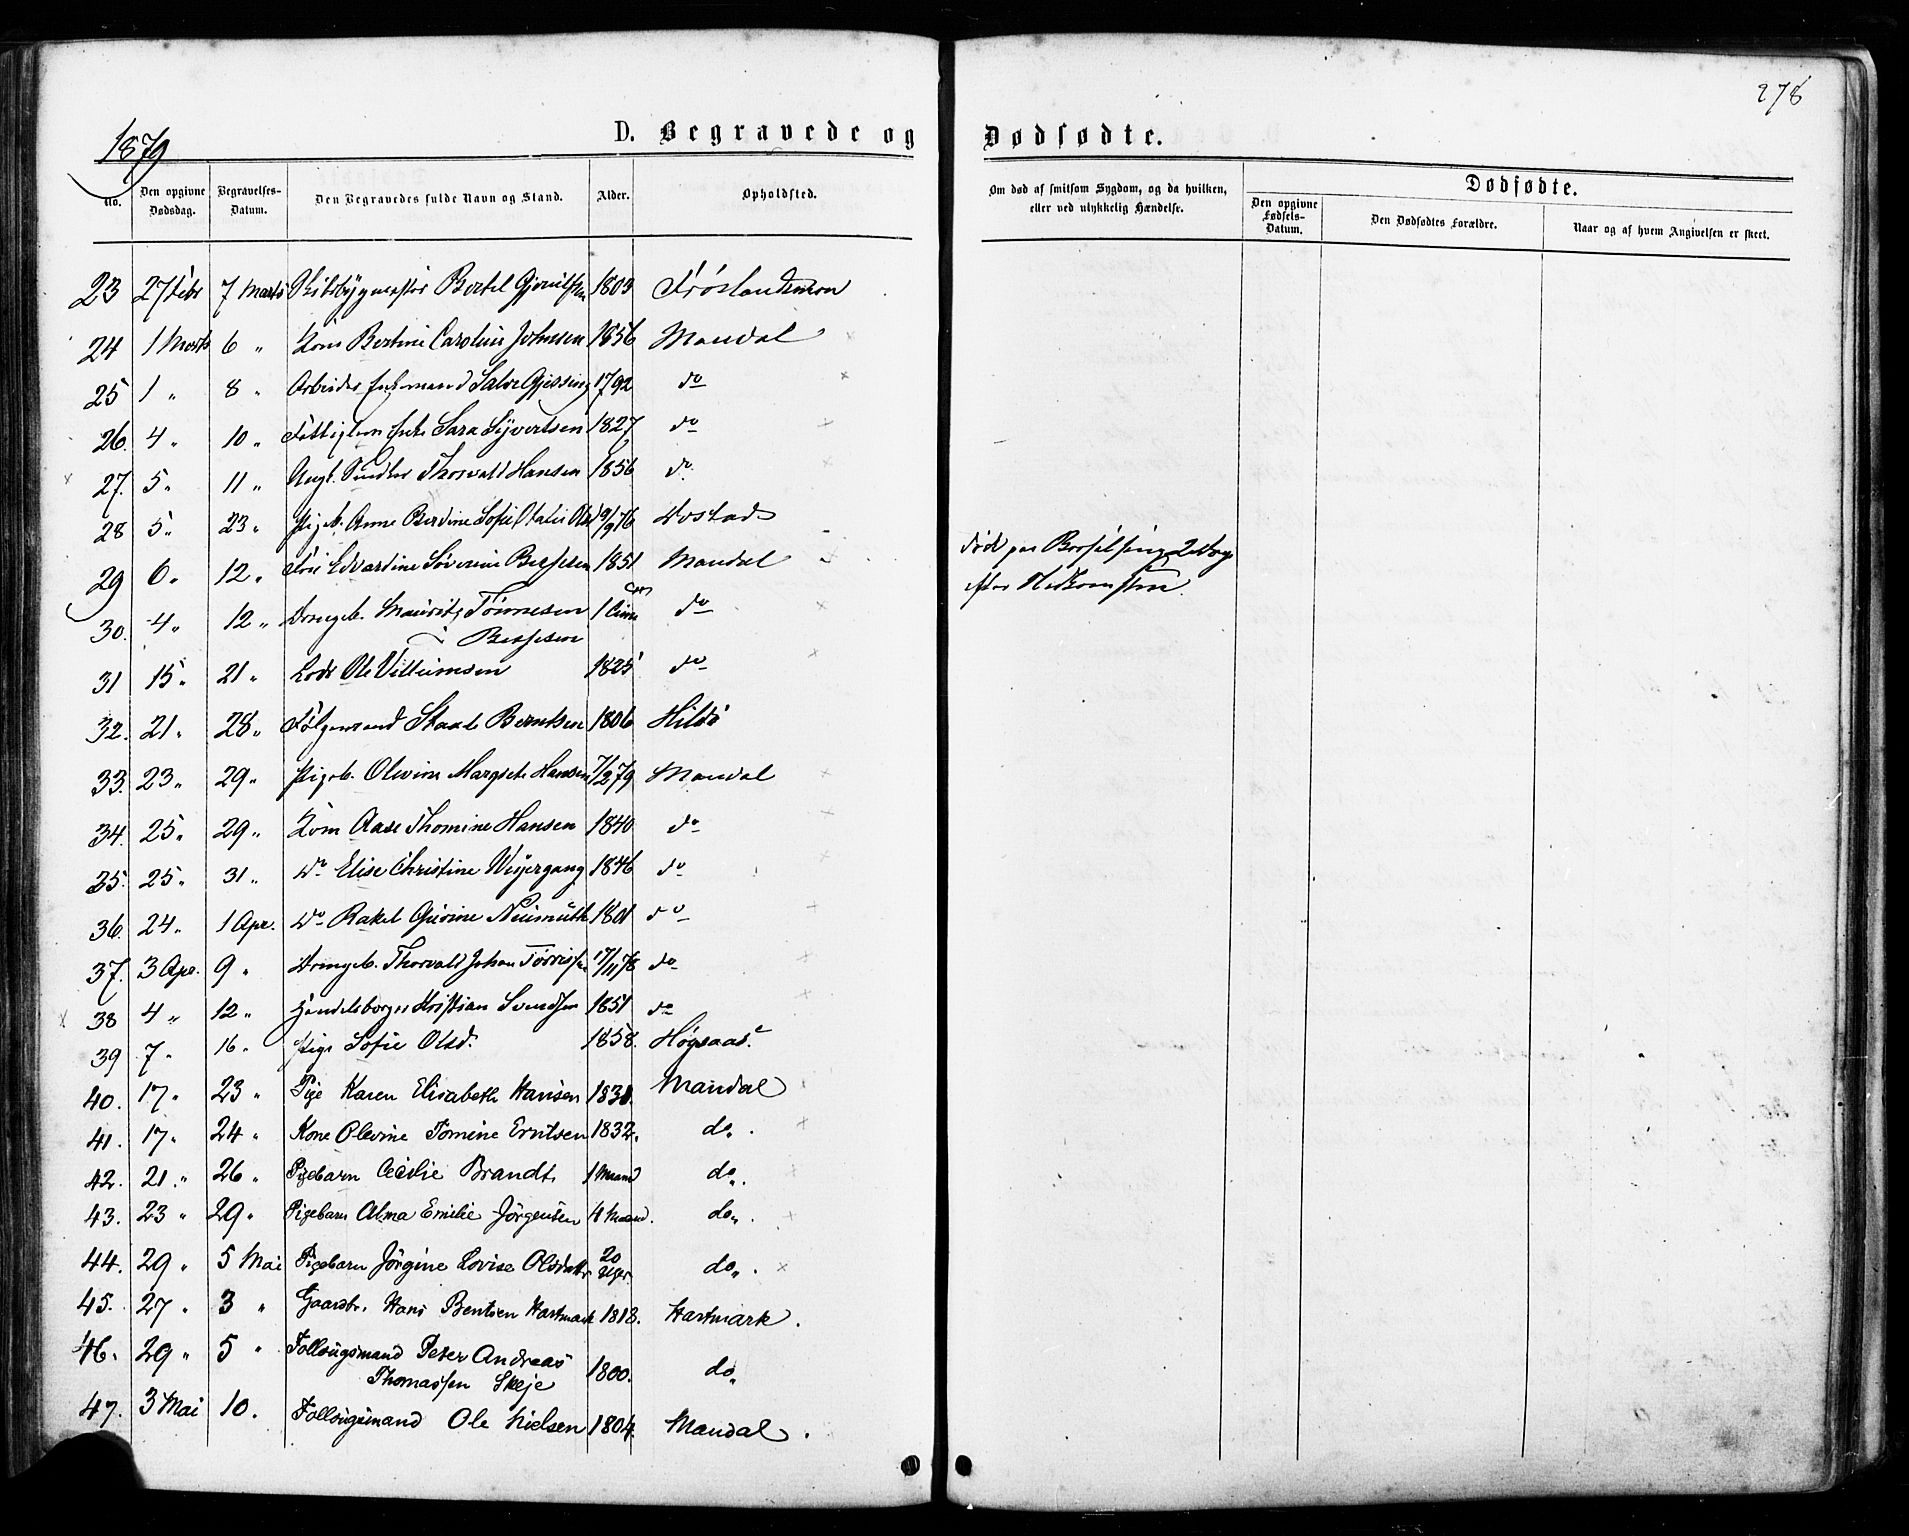 278
1879
D. Begravede og Dødfødte.
No. Den opgivne Dødsdag. Begravelses-Datum. Den Begravedes fulde Navn og Stand. Alder. Opholdsted. Om død af smitsom Sygdom, og da hvilken, eller ved ulykkelig Hændelse. Dødfødte.
Den opgivne Fødsels-Datum. Den Dødfødtes Forældre. Naar og af hvem Angivelsen er skeet.
23 27 Febr 7 Marts Bertel 1803
24 1 Marts 6 " Kone Bertine Caroline Johnsen 1856 Mandal
25 1 " 8 " Arbeider Enkemand Salve Gjessing 1792 do
26. 4 " 10 " Fattiglem Enke Sara Syvertsen 1827 do
27. 5 " 11 " Ungk. Snedker Thorvald Hansen 1856 do.
28 5 " 23 " Pigeb. Anne Berdine Sofie Otalie Olsd 9/76
29 6 " 12 " Edvardine Severine Berntsen 1851 Mandal død paa Barselseng 2 Dage
efter Nedkomsten.
30. 4 " 12 " Drengeb. Mauritz Tønnesen 1 do
31 15 " 21 " Lods Ole Villumsen 1825 do
32. 21 " 28 " Følgemand Berntsen 1806
33. 23 " 29 " Pigeb. Olevine Margrete Hansen 7/2 79 Mandal
34. 25 " 29 " Kone Aase Thomine Hansen 1840 do
35. 25 " 31 " do Elise Christine Weyergang 1846 do
36. 24 " 1 Apr. do Rakel Neumuth 1801 do
37. 3 Apr. 9 " Drengeb. Thorvald Johan Tørrissen 17/11 78 do
38 4 " 12 " Handelsborger Kristian Svendsen 1851 do
39 7 " 16 " Pige Sofie Olsd. 1858. Høgsaas.
40. 17 " 23 " Pige Karen Elisabeth Hansen Mandal
41. 17 " 24 " Kone Olevine Tomine Erntsen 1832. do.
42. 21 " 26 " Pigebarn Cecilie Brandt. 1 Maaned do.
43. 23 " 29 " Pigebarn Alma Emilie Jörgensen 4 Maaned. do.
44. 29 " 5 Mai Pigebarn Jörgine Lovise Olsdatter 20 Uger. do.
45. 27 " 3 " Gaardbr. Hans Bentsen Hartmark 1818. Hartmark.
46. 29 " 5 " Follougsmand Peter Andreas
Thomassen Skeje 1800. do.
47. 3 Mai 10. Follougsmand Ole Nielsen 1804. Mandal.